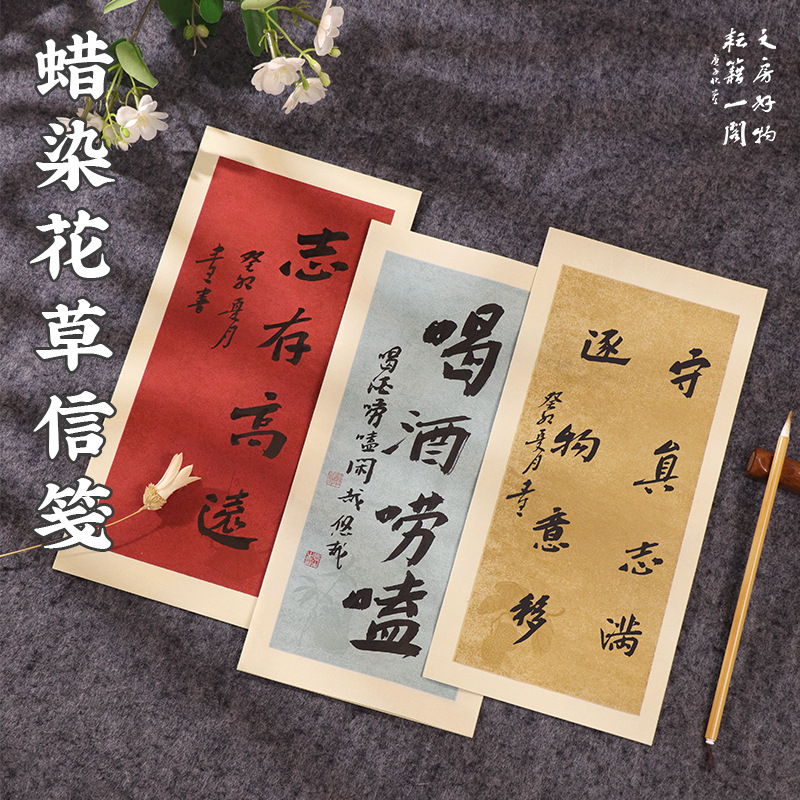 蜡染花草信笺
文房好物
耘籍一阁
志存高远
癸卯夏月
青书
喝酒唠嗑
喝酒唠嗑闲哉悠哉
守真志满
逐物意移
癸卯夏月青